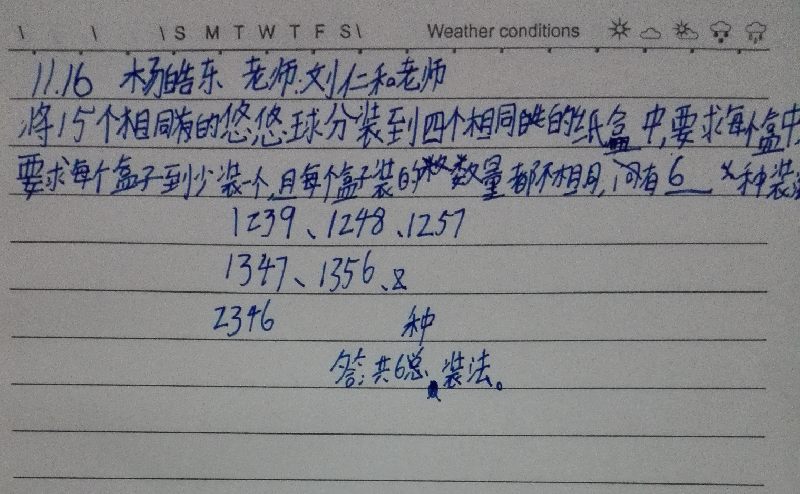 S M T W T F S Weather conditions
11.16 杨皓东 老师:刘仁和老师
将15个相同的悠悠球分装到四个相同的的纸盒中,要求每个盒中
要求每个盒子到少装一个,且每个盒子装的数量都不相同,问有6种装法
1239、1248、1257
1347、1356、
2346 种
答:共6总装法。